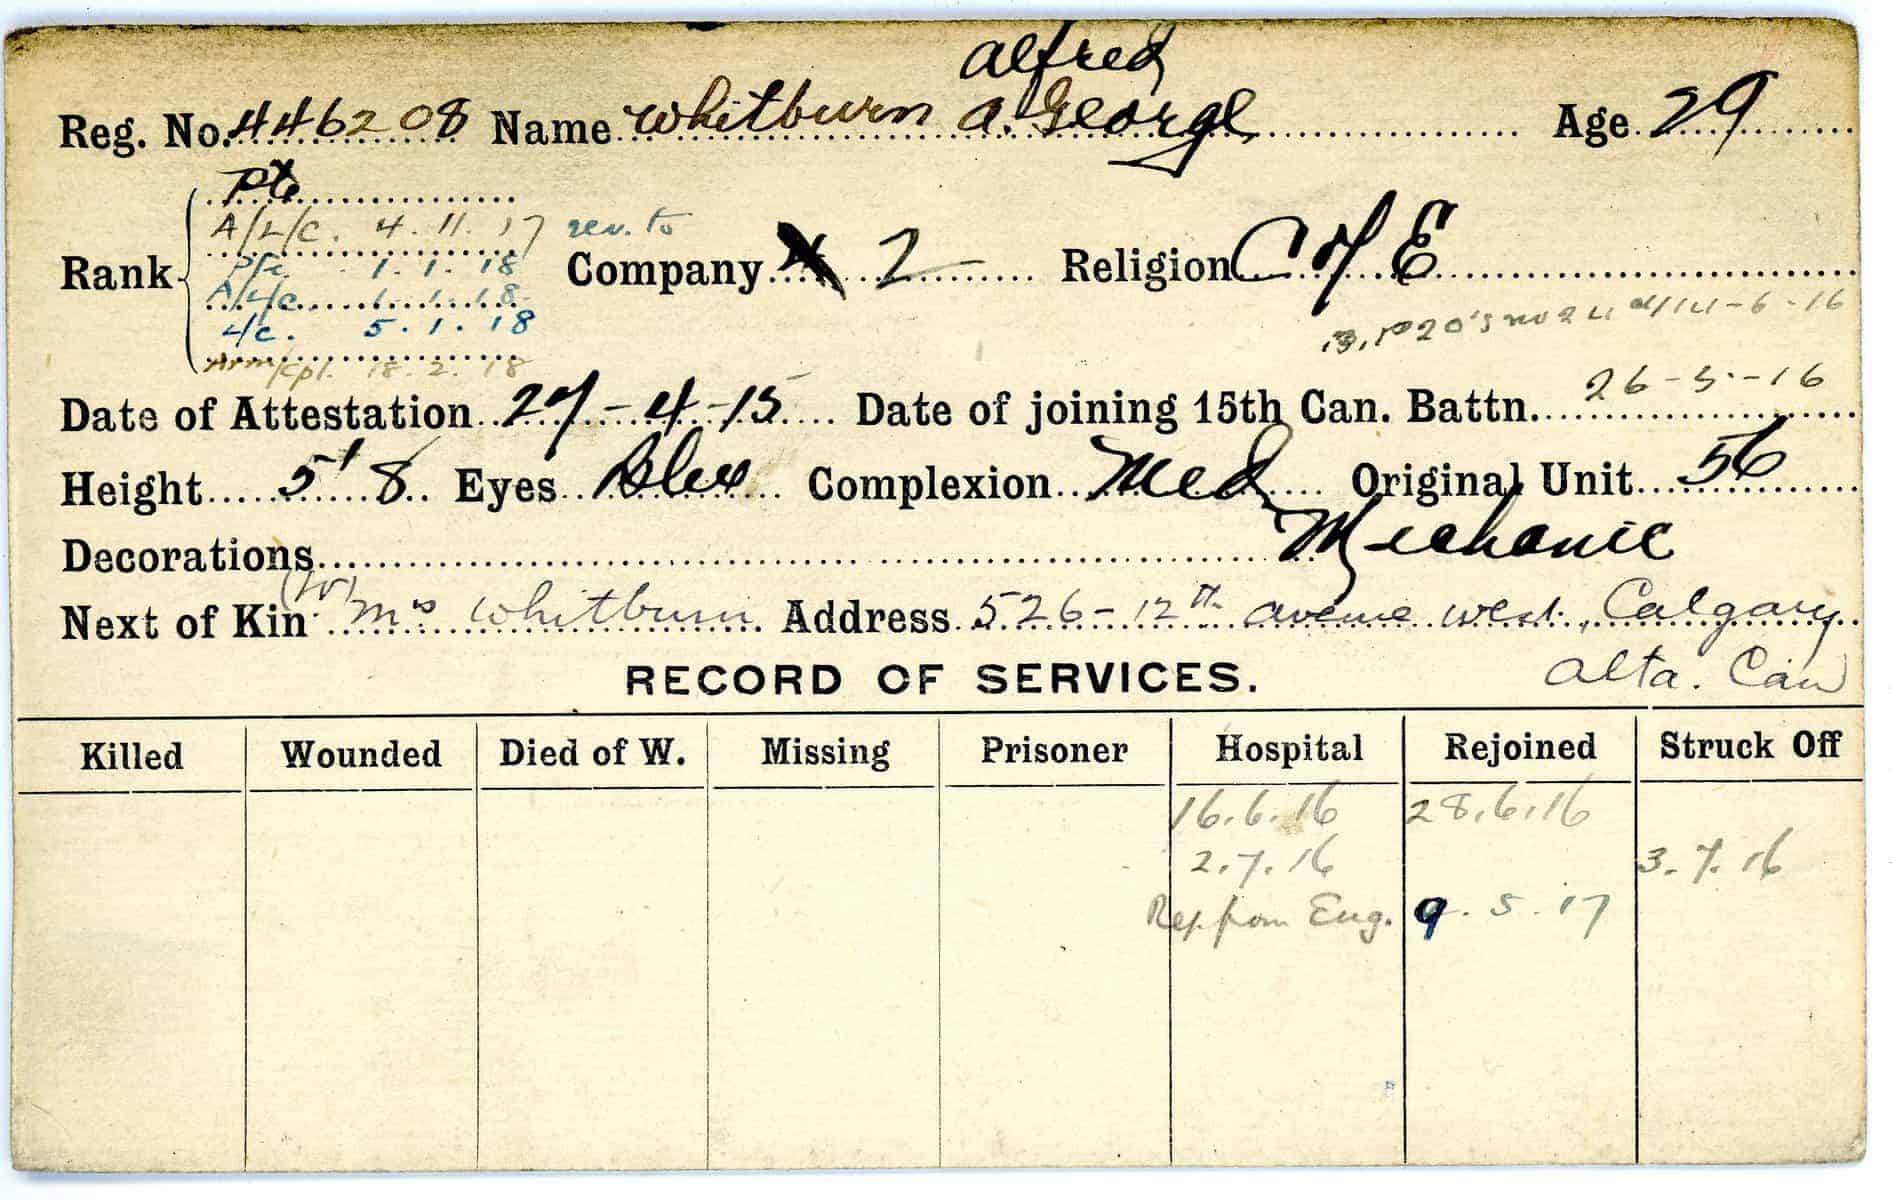 Alfred
Reg. No. 446208 Name Whitburn A. George Age 29
Pte
A/L/C. 4.11.17 rev. to
Rank Pte 1.1.18 Company X 2 Religion C of E
A/L/c 1.1.18
L/c. 5.1.18 20's no 24 d/14-6-16
/Cpl. 18.2.18
Date of Attestation 27-4-15 Date of joining 15th Can. Battn. 26-5-16
Height 5' 8 Eyes Blue Complexion Med Original Unit 56
Decorations Mechanic
(W)
Next of Kin Mrs Whitburn Address 526-12th avenue west, Calgary
Alta. Can
RECORD OF SERVICES.
Killed Wounded Died of W. Missing Prisoner Hospital Rejoined Struck Off
16.6.16 28.6.16
2.7.16 3.7.16
Rep from Eng. 9.5.17